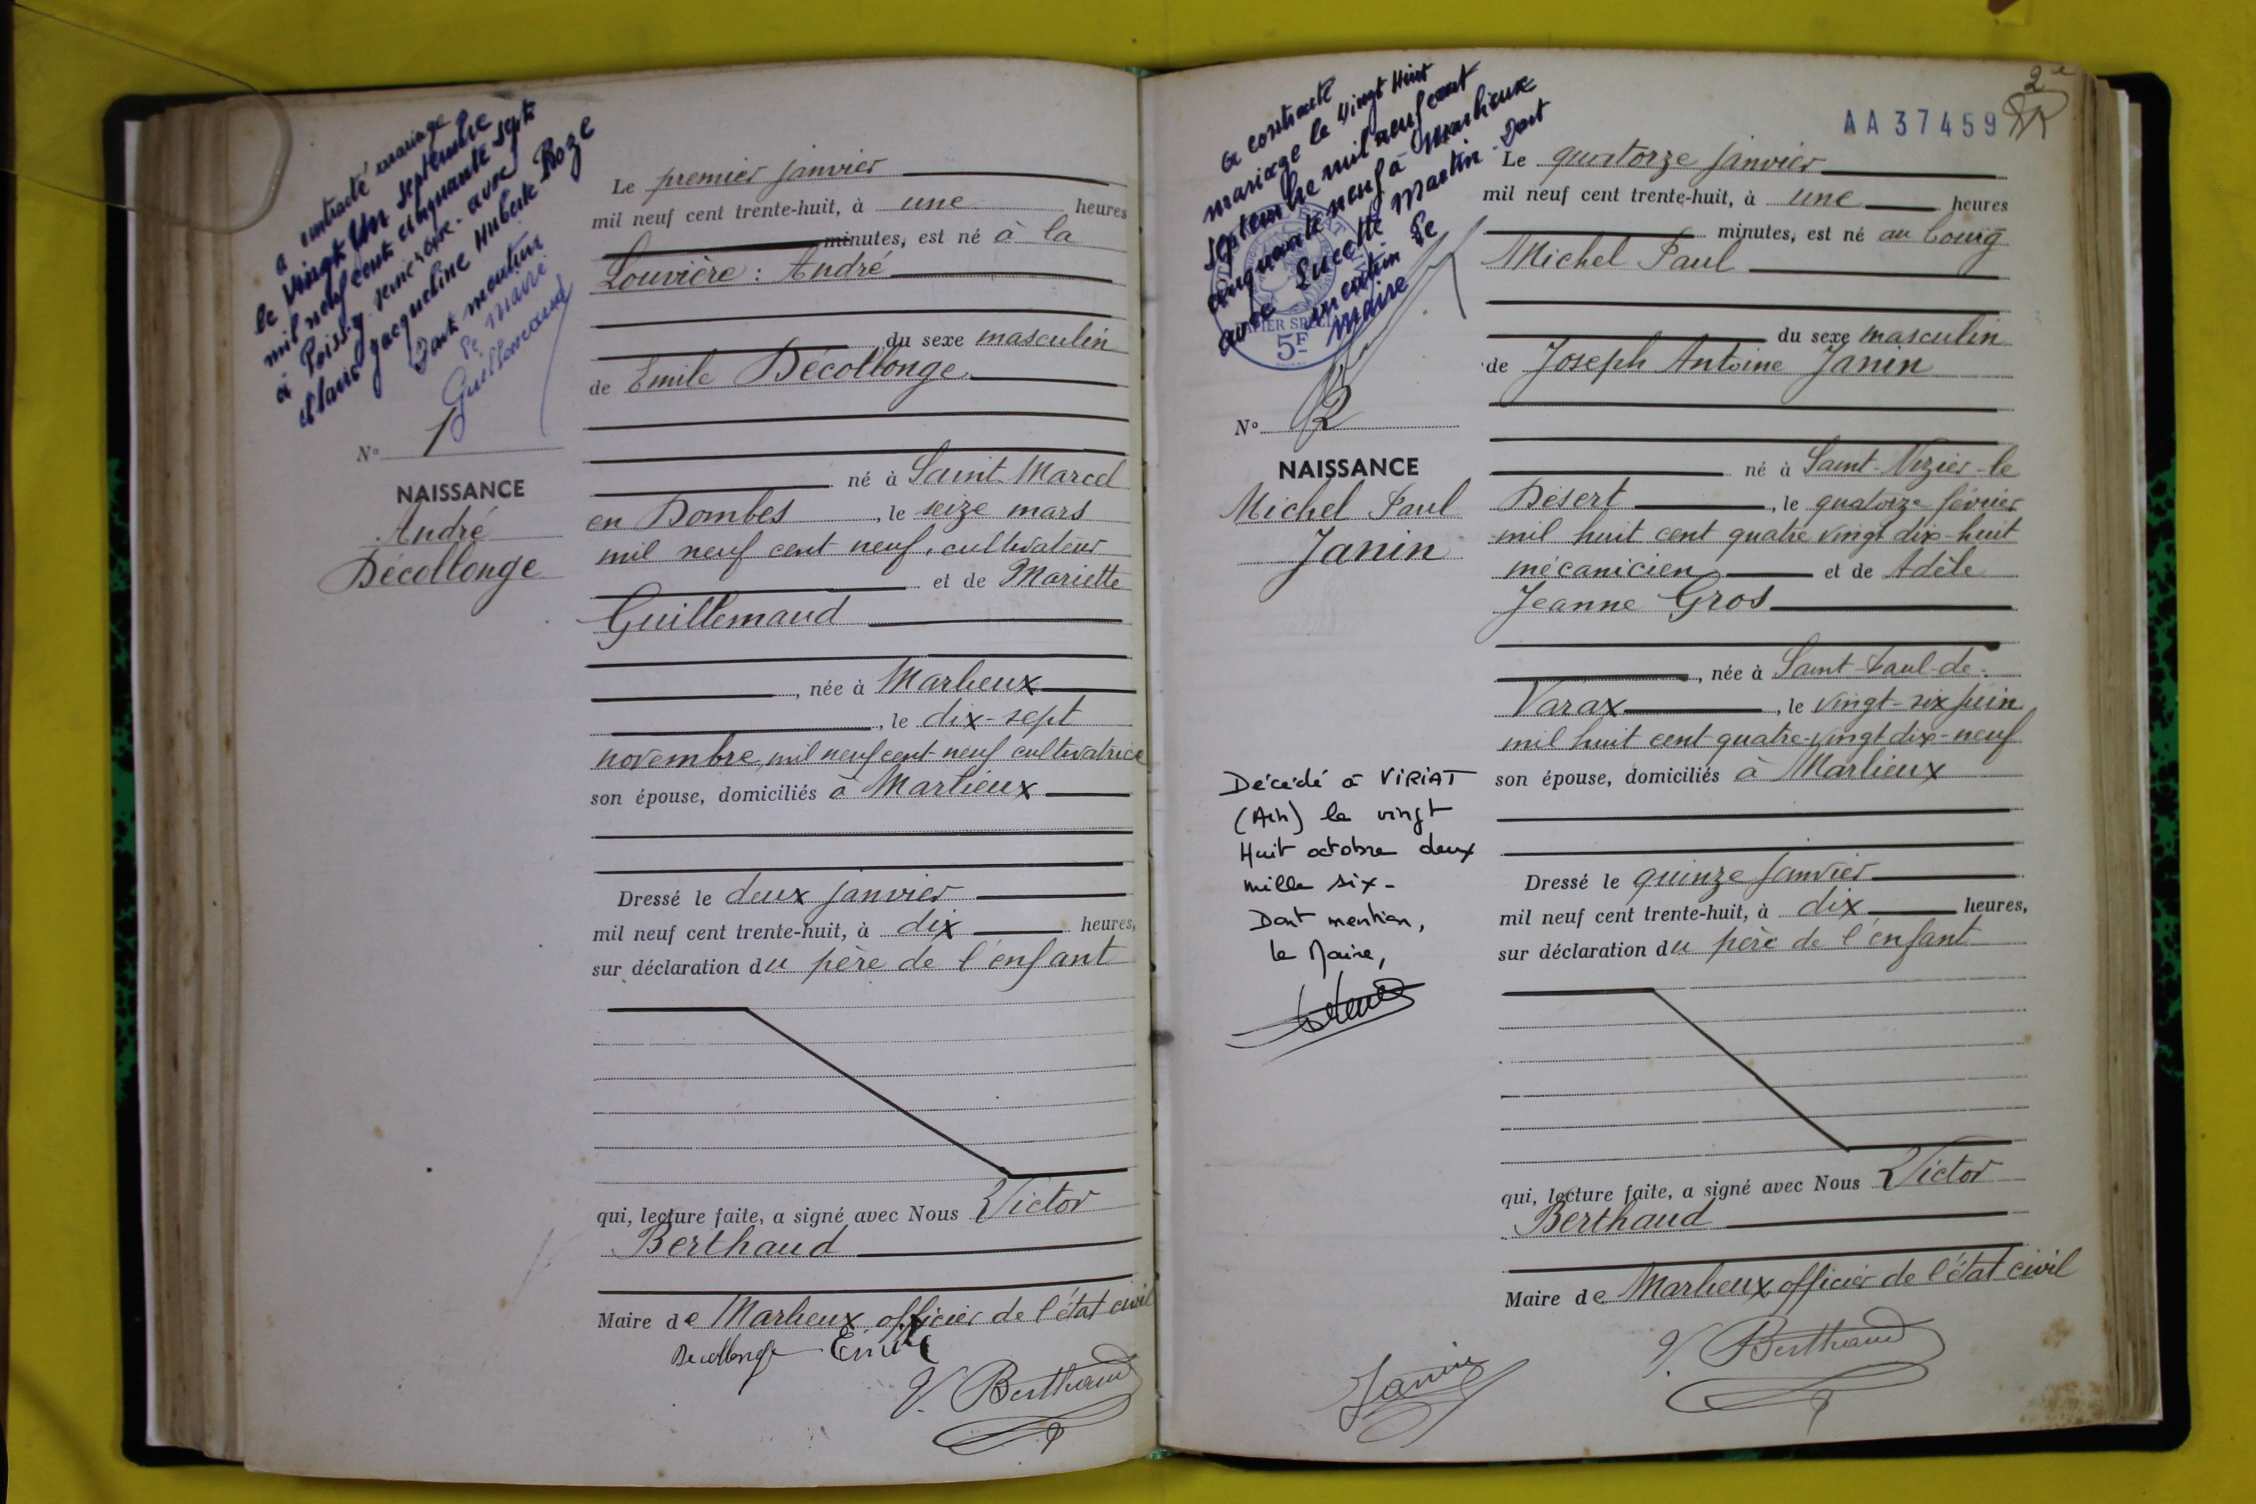 a contracté mariage
le vingt un septembre
mil neuf cent cinquante sept
à Poissy Seine et Oise. avec
Jacqueline Huberte Roze
Dont mention
le maire
Guillemaud
N° 1
NAISSANCE
André
Décollonge
Le premier janvier
mil neuf cent trente-huit, à une heures
minutes, est né à la
Louvière : André
du sexe masculin
de Emile Décollonge
né à Saint Marcel
en Dombes, le seize mars
mil neuf cent neuf, cultivateur
et de Mariette
Guillemaud
, née à Marlieux
, le dix-sept
novembre mil neuf cent neuf cultivatrice
son épouse, domiciliés à Marlieux
Dressé le deux janvier
mil neuf cent trente-huit, à dix heures,
sur déclaration du père de l'enfant
qui, lecture faite, a signé avec Nous Victor
Berthaud
Maire de Marlieux officier de l'état civil
Decollonge Emile
V. Berthaud
2e
AA 37459
a contracté
mariage le vingt Huit
septembre mil neuf cent
cinquante neuf à Marlieux
avec Lucette Martin Dont
mention le
maire
5F
N° 2
NAISSANCE
Michel Paul
Janin
Décédé à VIRIAT
(Ain) le vingt
Huit octobre deux
mille six -
Dont mention,
le Maire,
Le quatorze janvier
mil neuf cent trente-huit, à une heures
minutes, est né au bourg
Michel Paul
du sexe masculin
de Joseph Antoine Janin
né à Saint-Nizier-le
Désert, le quatorze février
mil huit cent quatre vingt dix-huit
mécanicien et de Adèle
Jeanne Gros
, née à Saint-Paul-de-
Varax, le vingt-six juin
mil huit cent quatre-vingt dix-neuf
son épouse, domiciliés à Marlieux
Dressé le quinze janvier
mil neuf cent trente-huit, à dix heures,
sur déclaration du père de l'enfant
qui, lecture faite, a signé avec Nous Victor
Berthaud
Maire de Marlieux officier de l'état civil
Janin
V. Berthaud